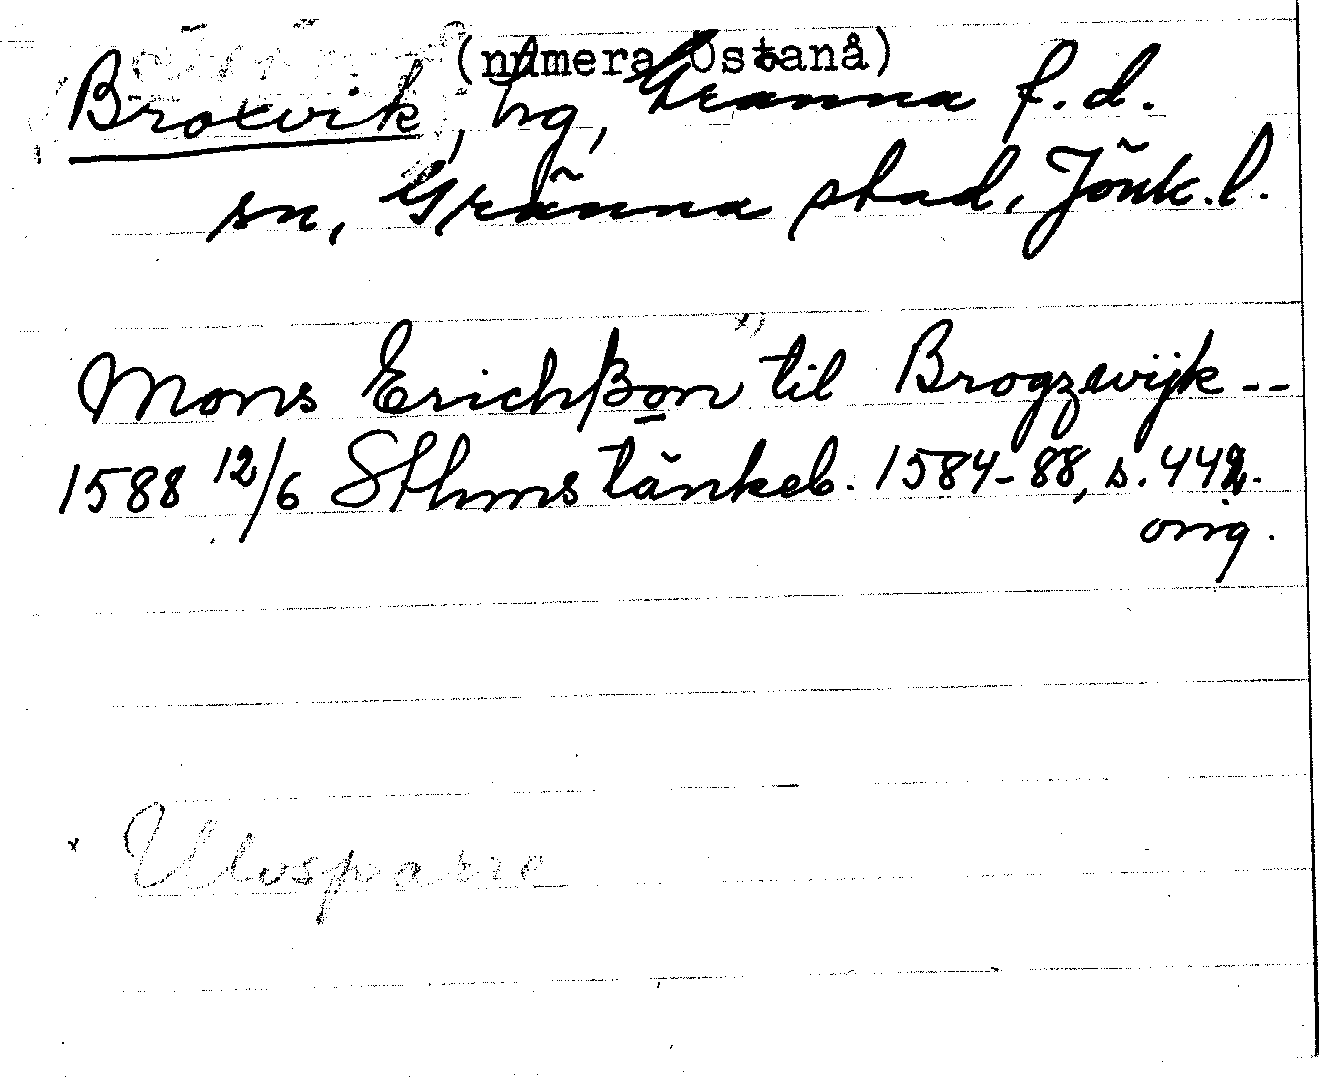 (numera Östanå)
Broxvik, hg, Gränna f.d.
sn, Gränna stad, Jönk.l.
Mons Erichßon x) til Brogzwijk --
1588 12/6 Sthms tänkeb. 1584-88, s. 442.
orig.
x Ulvsparre